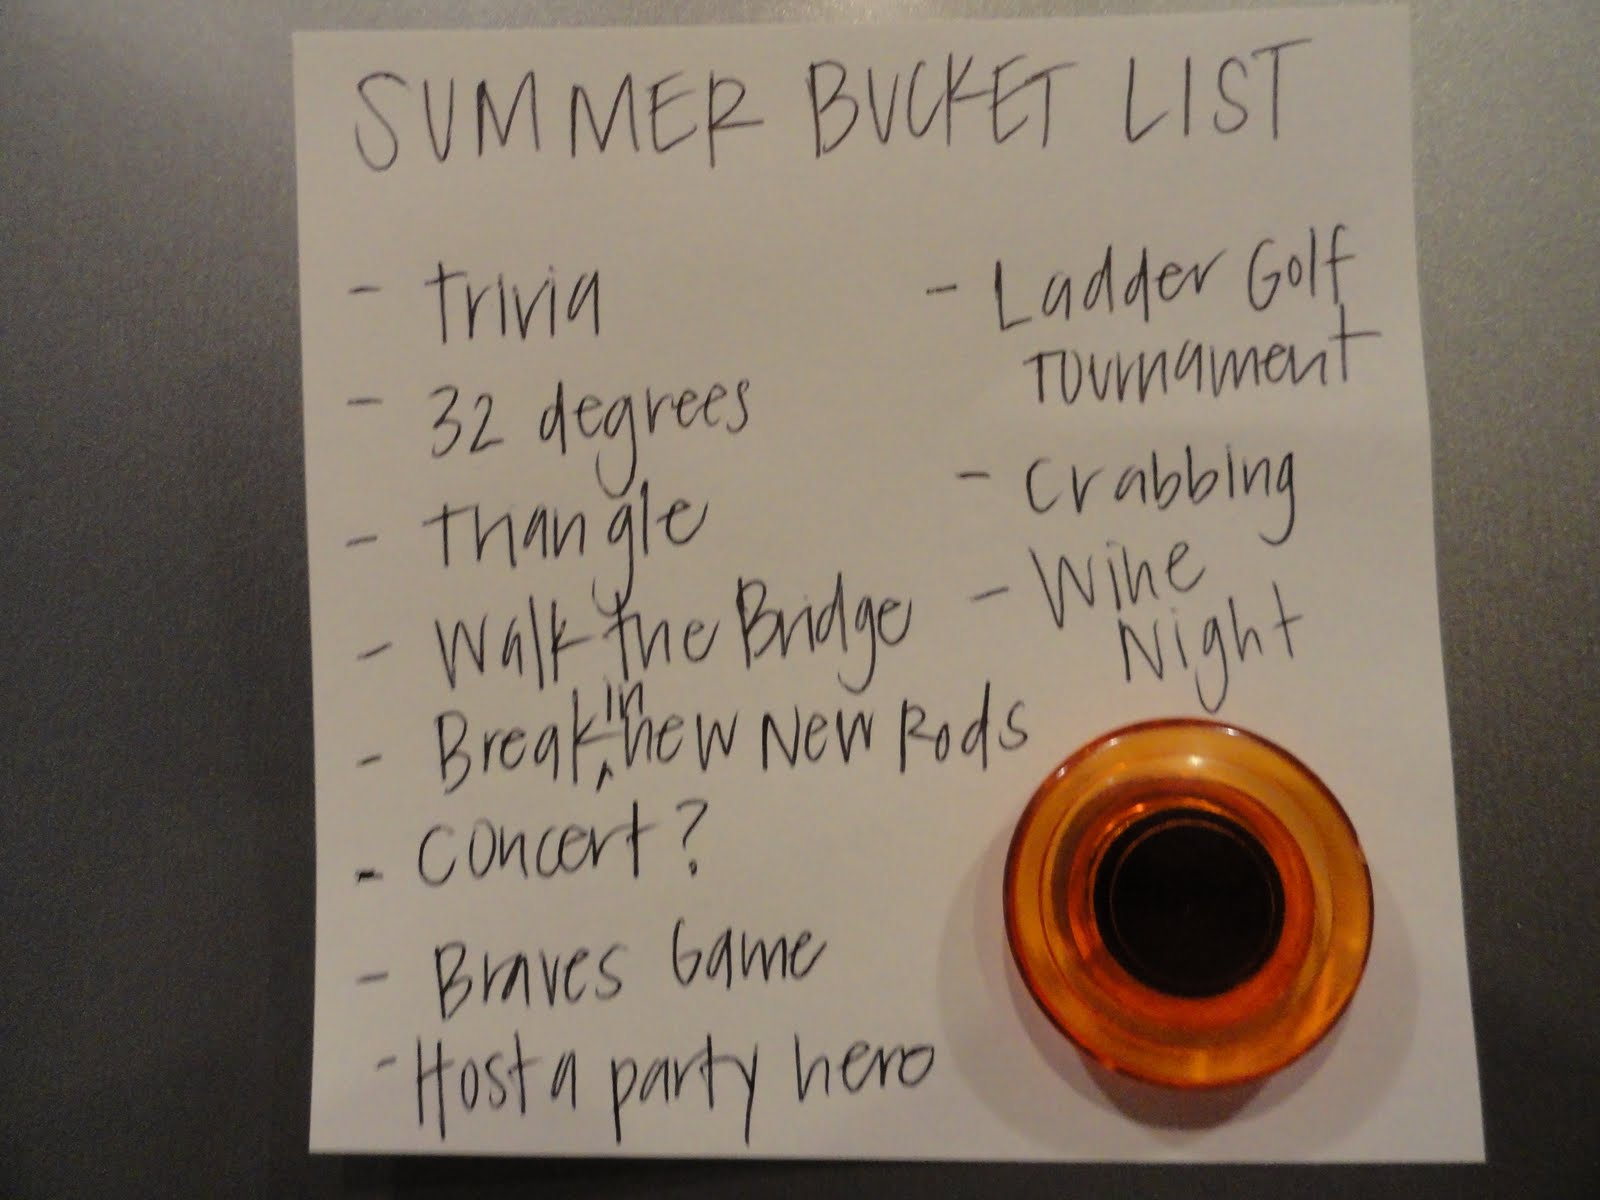 SUMMER BUCKET LIST
- Trivia
- 32 degrees
- Thangle
- Walk the Bridge
- Break in new New Rods
- Concert?
- Braves Game
- Host a party hero
- Ladder Golf
Tournament
- Crabbing
- Wine
Night